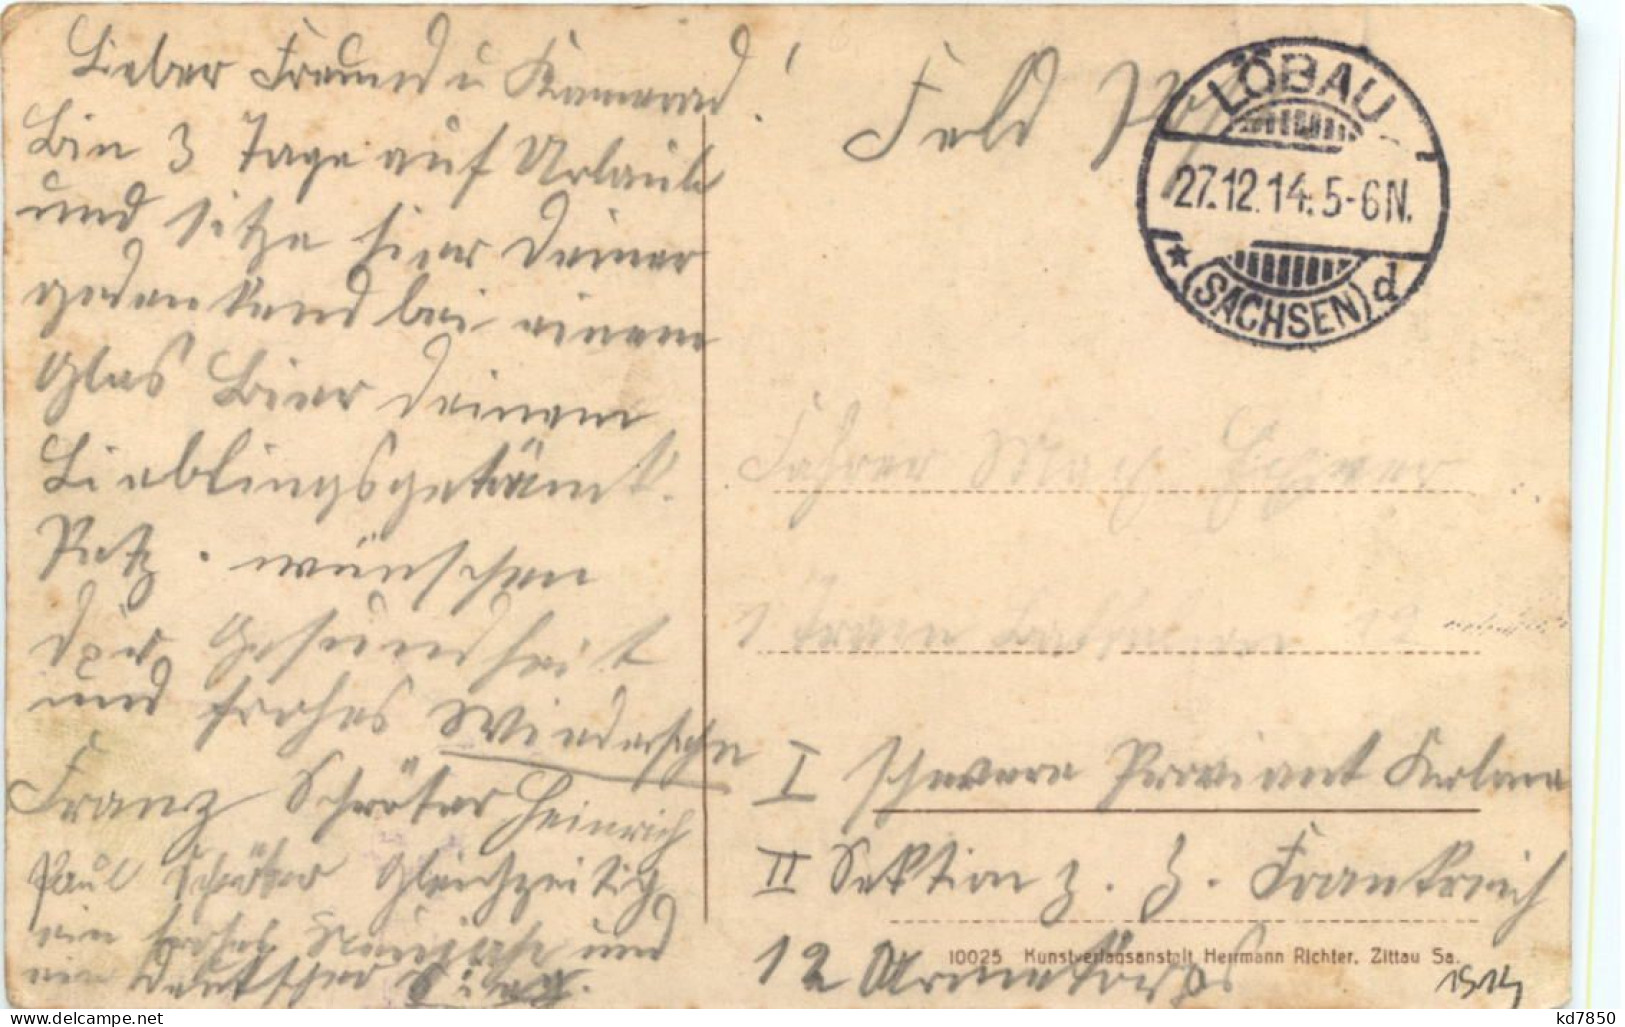 Lieber Freund u Kamerad!
Bin 3 Tage auf Urlaub
und sitze hier deiner
gedenkend bei einem
Glas Bier deinem
Lieblingsgetränk.
wünschen
dir Gesundheit
und frohes Wiedersehn
Franz Schröter Heinrich
Paul Schröter Gleichzeitig
ein frohes Neujahr und
ein Deutscher Sieg.
Feld Post
LÖBAU
27.12.14. 5-6N.
(SACHSEN) d
Fahrer
1 Train 12
I schwere Proviant Kolonne
II Sektion z. Z. Frankreich
12 Armekorps
10025 Kunstverlagsanstalt Herrmann Richter, Zittau Sa.
1914
kd7850